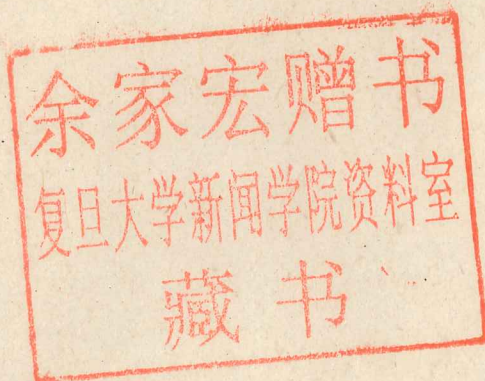 余家宏赠书
复旦大学新闻学院资料室
藏书